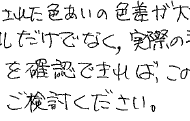 された色あいの色差が大
しだけでなく,実際の
を確認できれば,こ
ご検討ください。